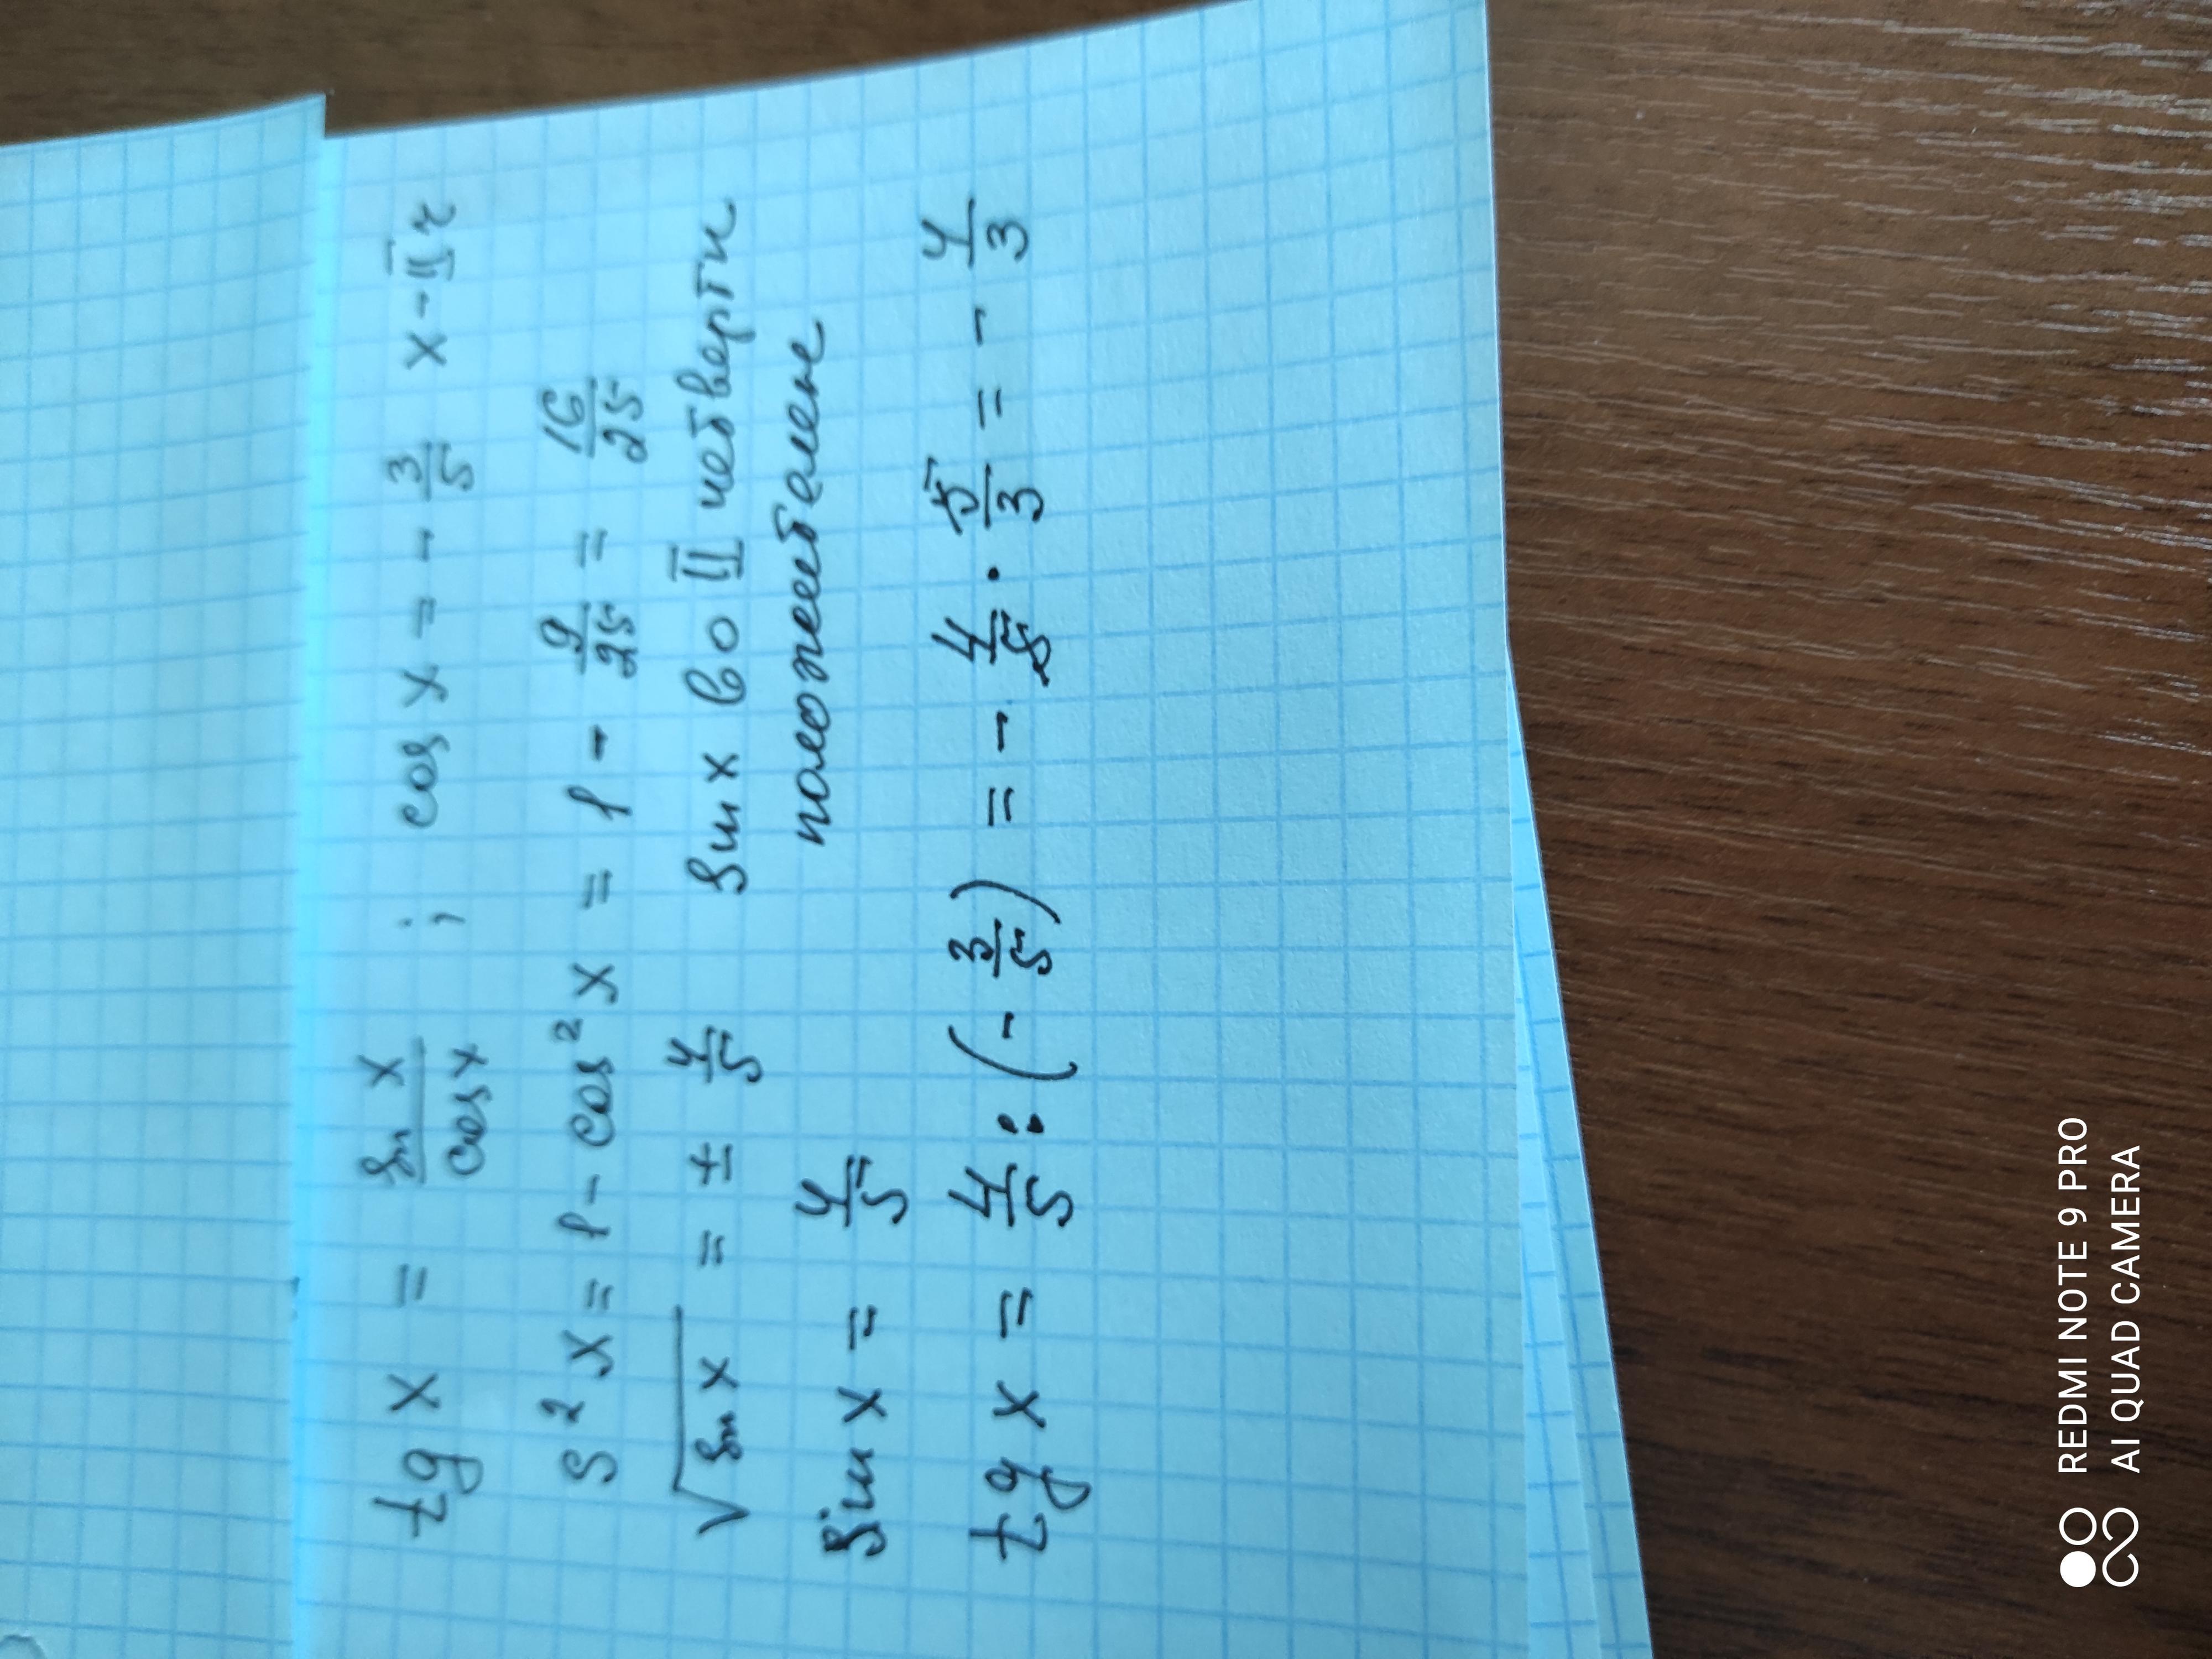 tg x = sin x / cos x ; cos x = - 3/5 x - II ч
S² x = 1 - cos² x = 1 - 9/25 = 16/25
√sin x = ± 4/5 sin x во II четверти
sin x = 4/5 положителен
tg x = 4/5 : (- 3/5) = - 4/5 · 5/3 = - 4/3
REDMI NOTE 9 PRO
AI QUAD CAMERA